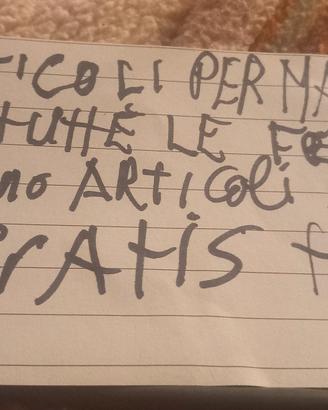 TICOLI PER MA
TUTTÉ LE FE
no ARTICOLI
GRATIS